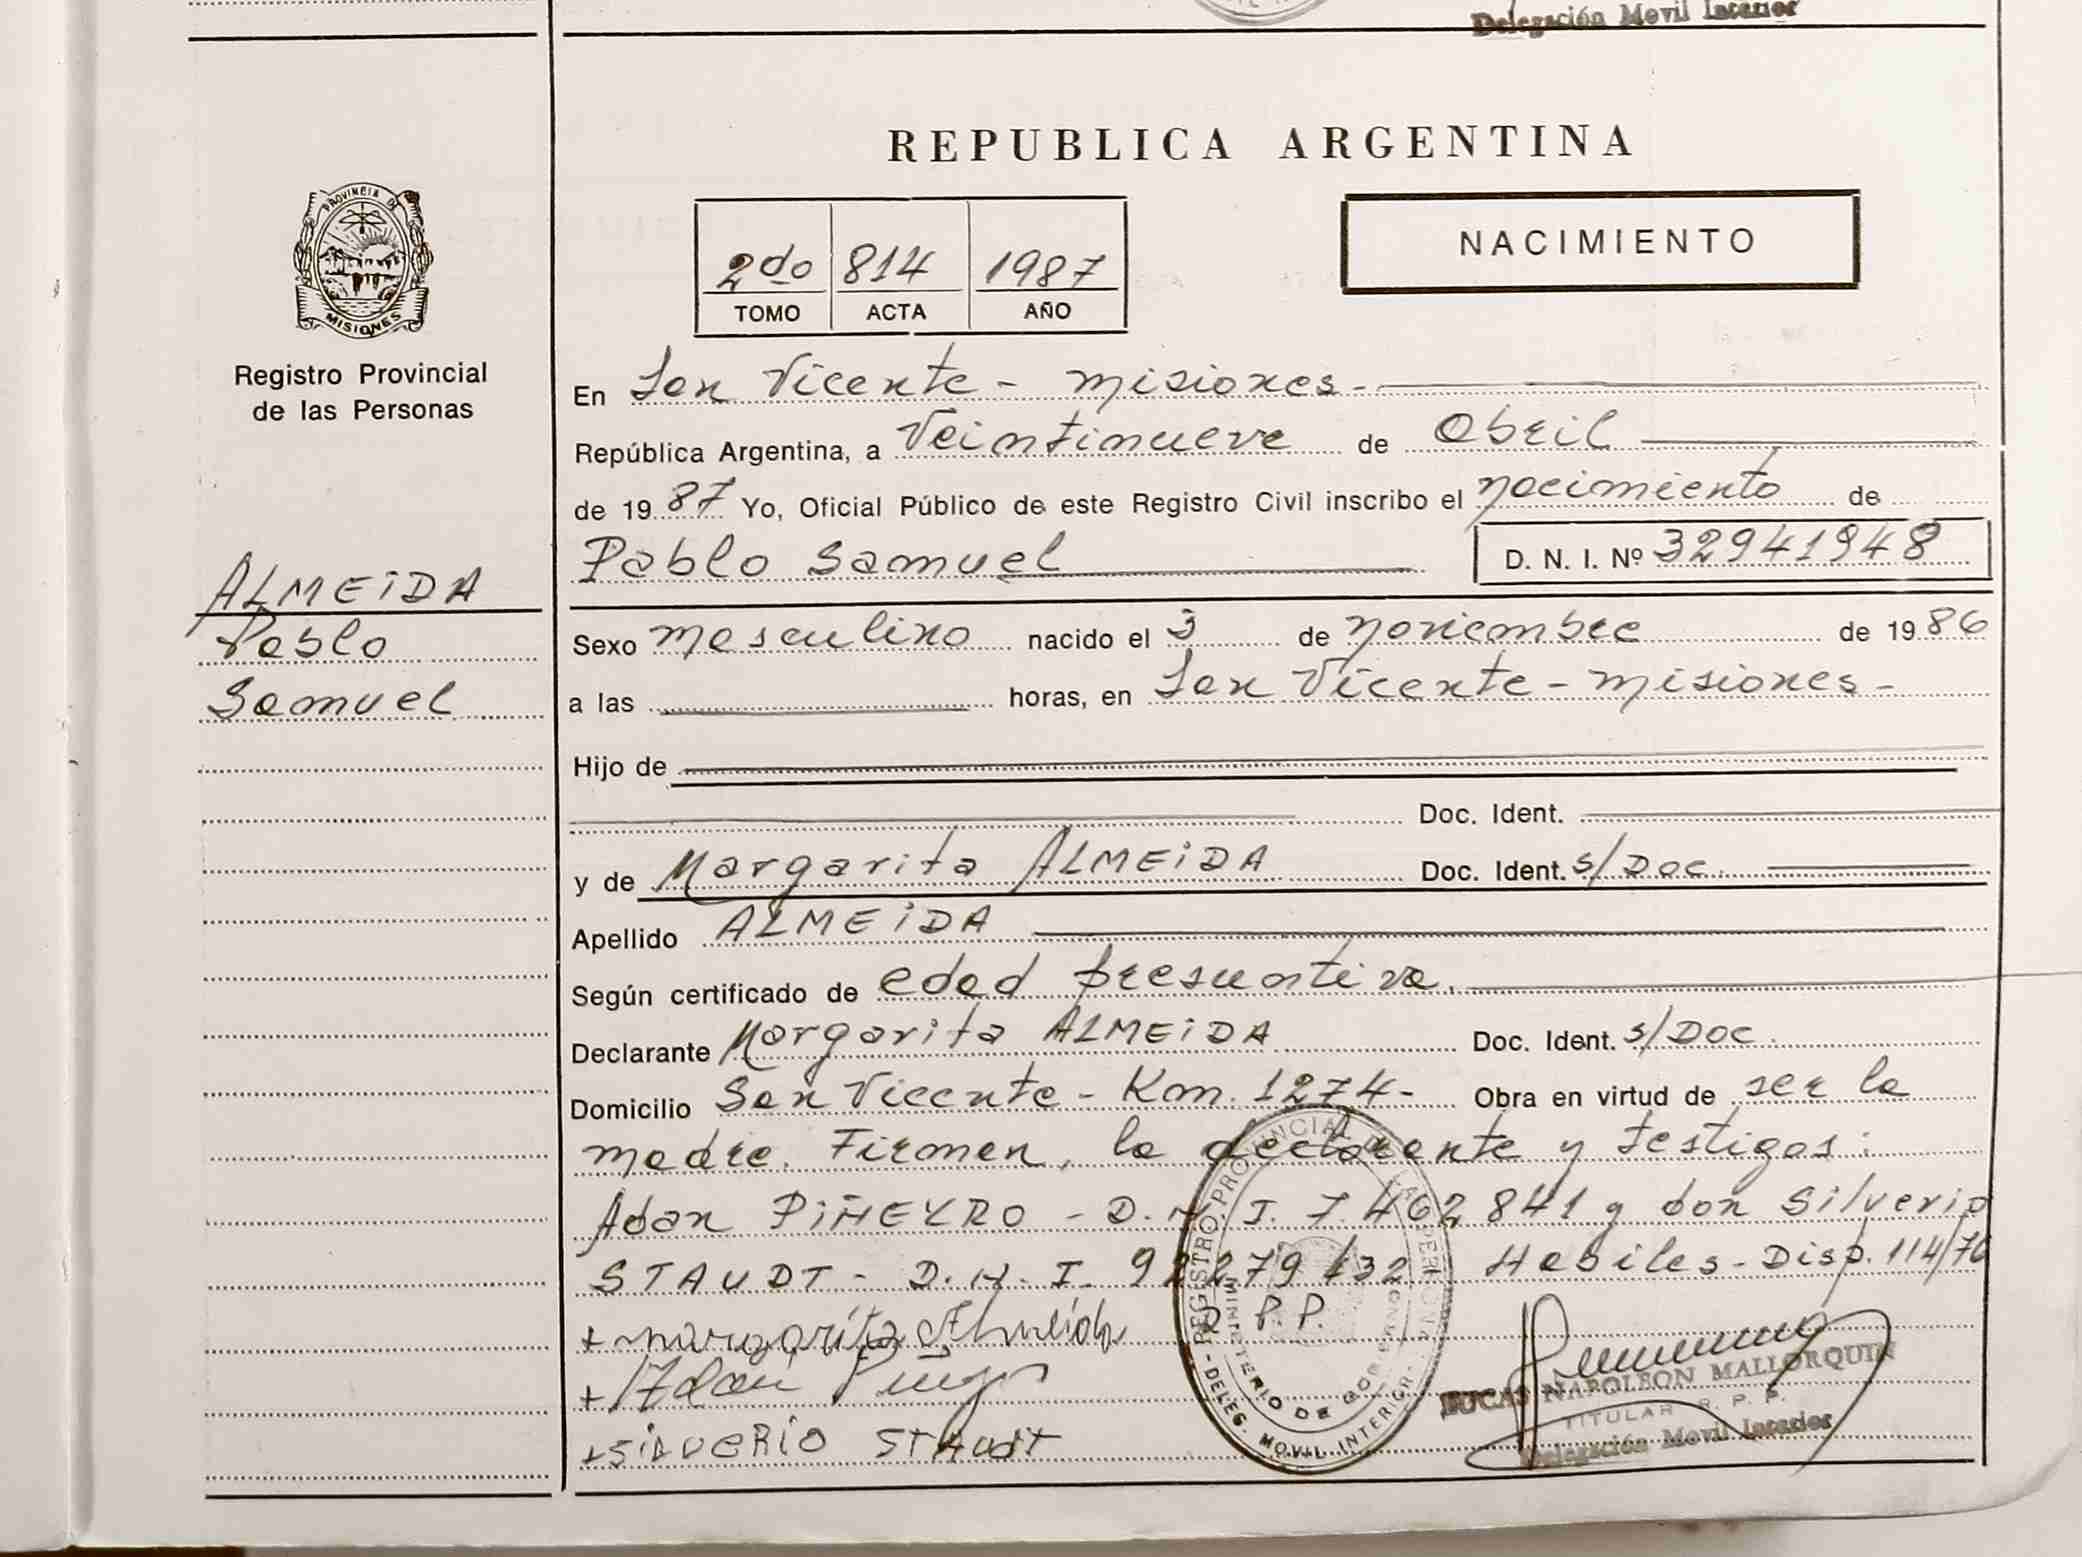 Delegación Movil Interior
REPUBLICA ARGENTINA
PROVINCIA DE
MISIONES
Registro Provincial
de las Personas
2do 814 1987
TOMO ACTA AÑO
NACIMIENTO
En San Vicente - Misiones -
República Argentina, a Veintinueve de Abril
de 1987 Yo, Oficial Público de este Registro Civil inscribo el nacimiento de
Pablo Samuel D. N. I. Nº 32941948
ALMEIDA
Pablo
Samuel
Sexo masculino nacido el 3 de noviembre de 1986
a las horas, en San Vicente - Misiones -
Hijo de
Doc. Ident.
y de Margarita ALMEIDA Doc. Ident. s/Doc.
Apellido ALMEIDA
Según certificado de edad presuntiva.
Declarante Margarita ALMEIDA Doc. Ident. s/Doc.
Domicilio San Vicente - Km. 1274 - Obra en virtud de ser la
madre. Firman, la declarante y testigos:
Adan PIÑEYRO - D. N. I. 7.462841 y don Silverio
STAUDT - D. N. I. 92279132 - Habiles - Disp. 114/76
D. P. P.
+ Margarita Almeida
+ Adan
+ SILVERIO STAUdt
REGISTRO PROVINCIAL DE LAS PERSONAS
MINISTERIO DE GOBIERNO
- DELEG. MOVIL INTERIOR -
LUCAS NAPOLEON MALLORQUIN
TITULAR R. P. P.
Delegación Movil Interior